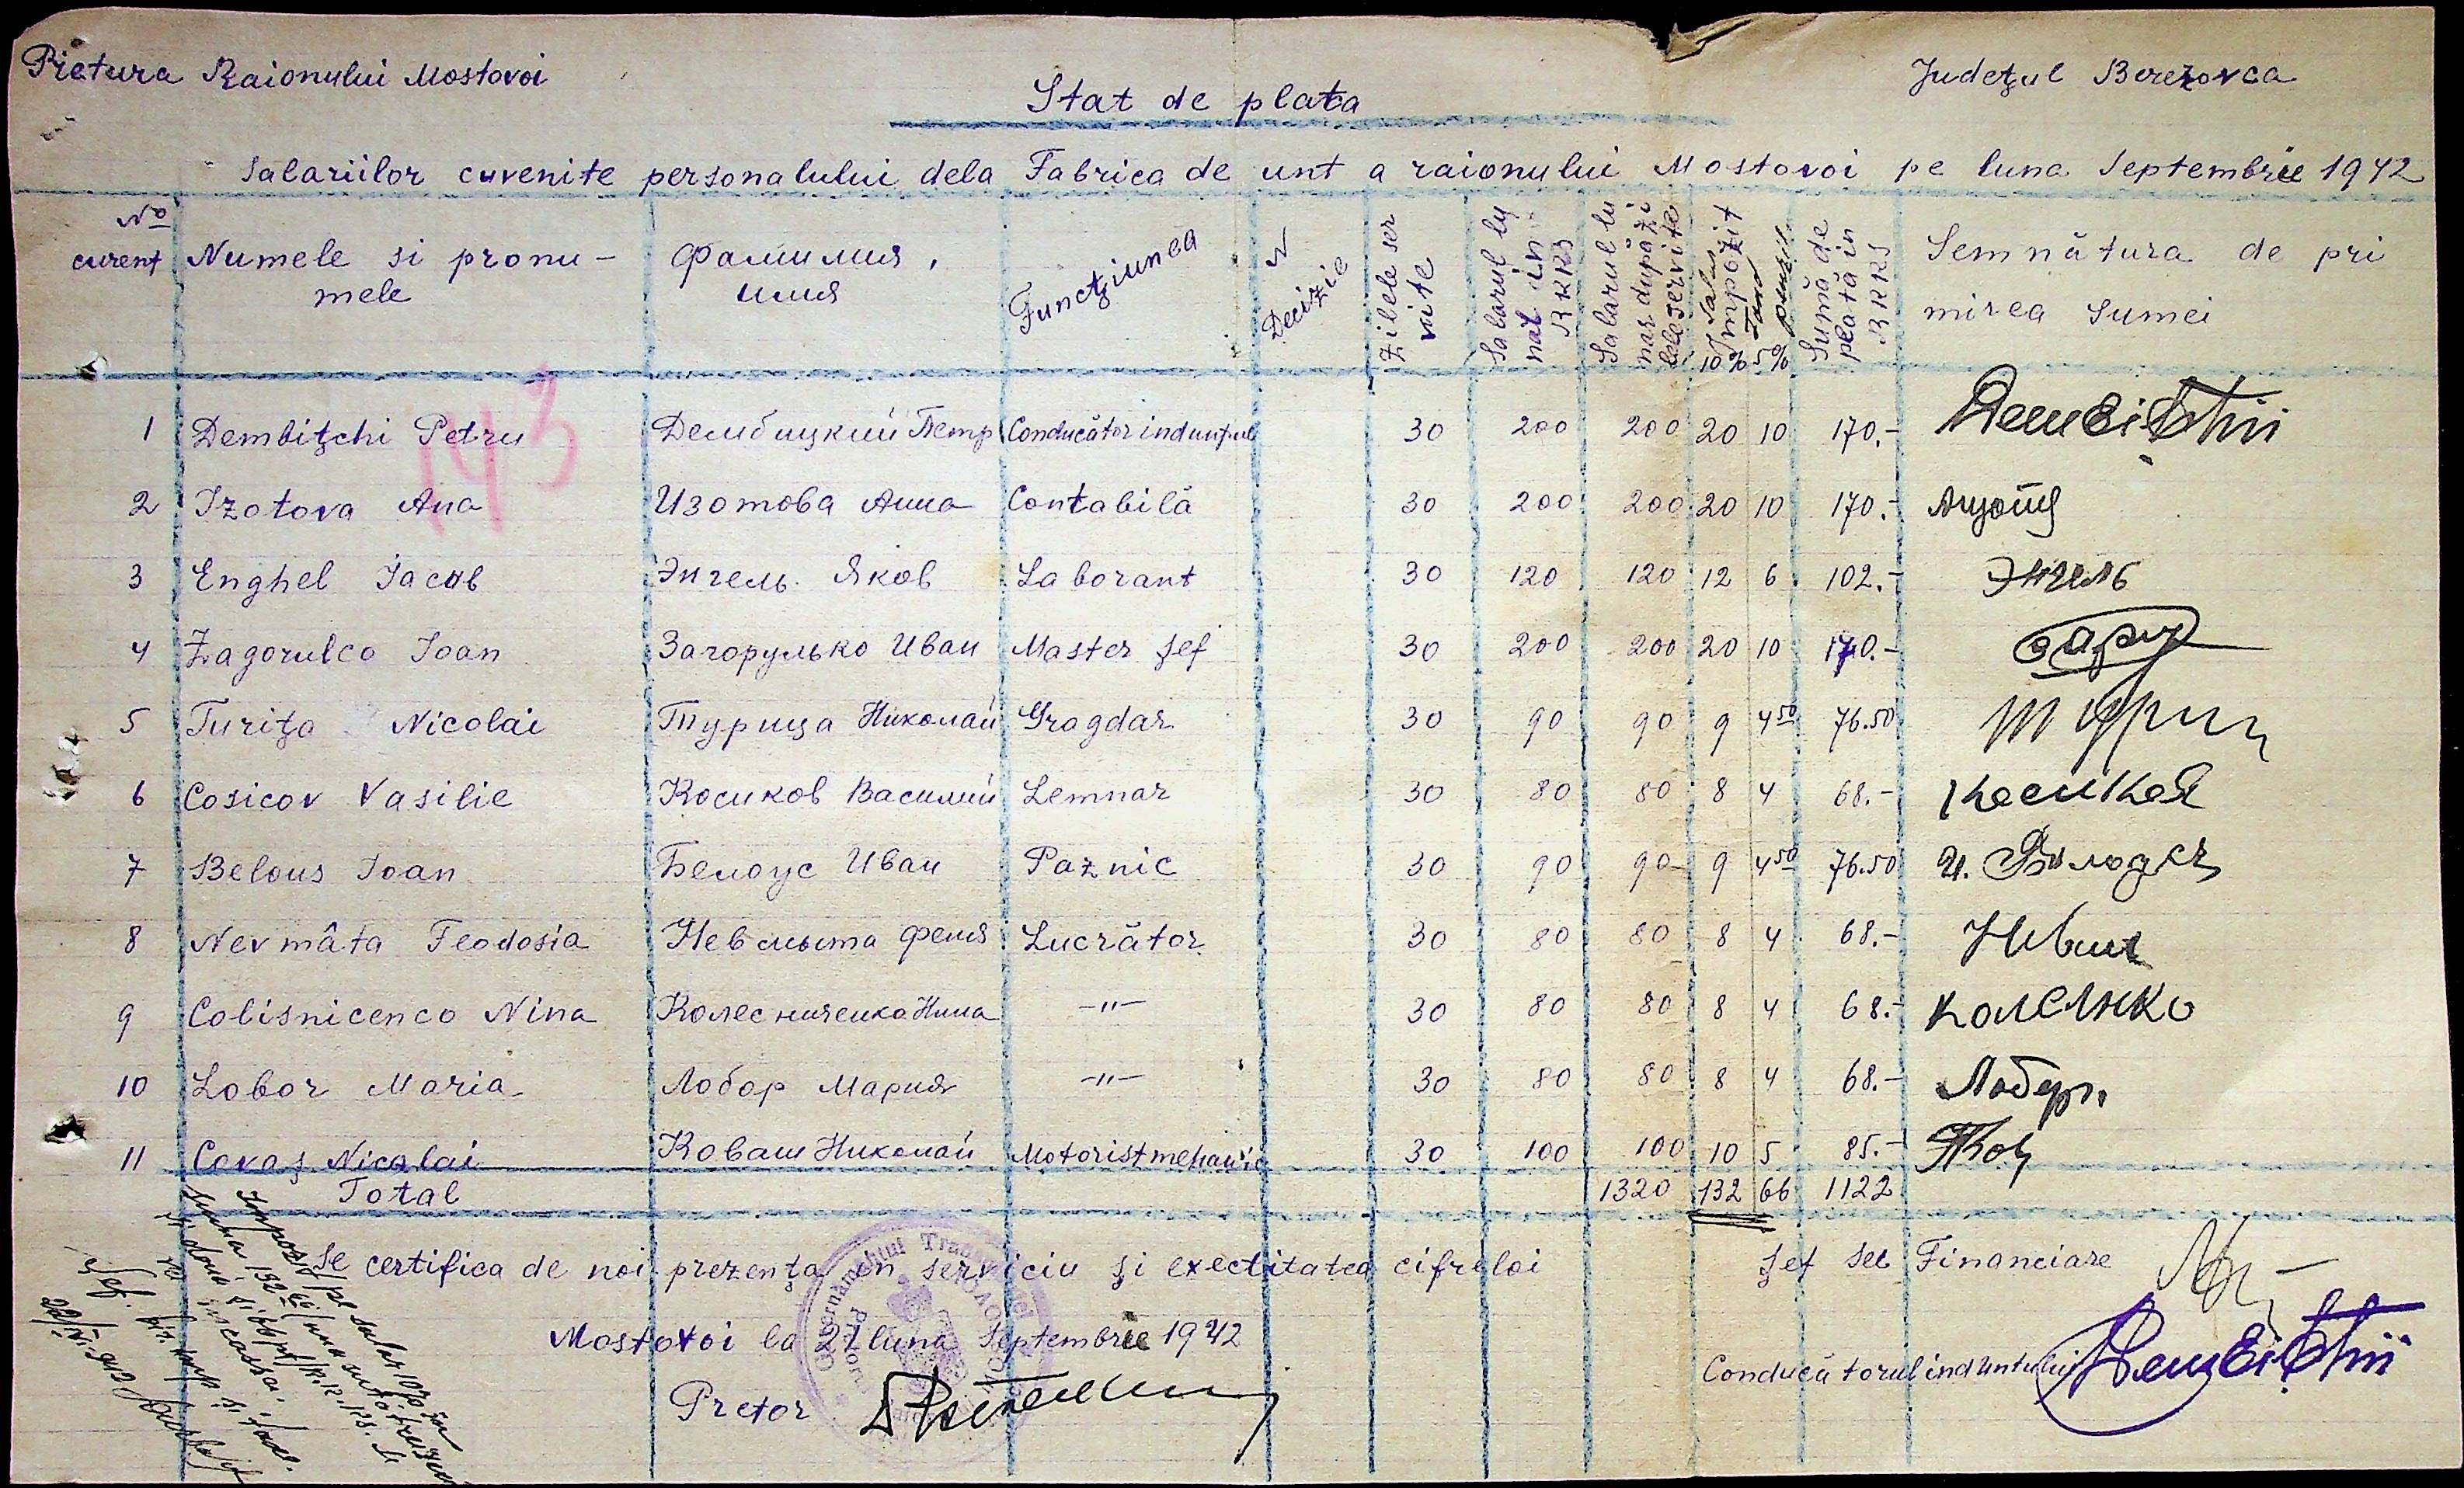 Pretura Raionului Mostovoi
Judeţul Berezovca
Stat de plata
Salariilor cuvenite personalului dela Fabrica de unt a raionului Mostovoi pe luna Septembrie 1942
№ curent | Numele si pronumele | Фамилия, имия | Funcţiunea | N Decizie | Zilele servite | Salarul lunar in RKKS | Salarul lunar după zilele servite | Impozit 10% | 5% | Sumă de plată in RKKS | Semnătura de primirea Sumei
1 Dembiţchi Petru Дембицкий Петр Conducător ind untului 30 200 200 20 10 170.-
2 Izotova Ana Изотова Анна Contabilă 30 200 200 20 10 170.-
3 Enghel Iacob Энгель Яков Laborant 30 120 120 12 6 102.- Энгель
4 Zagorulco Ioan Загорулько Иван Master şef 30 200 200 20 10 170.-
5 Turiţa Nicolai Турица Николай Gragdar 30 90 90 9 4 50 76.50
6 Cosicov Vasilie Косиков Василий Lemnar 30 80 80 8 4 68.- Косиков
7 Belous Ioan Белоус Иван Paznic 30 90 90 9 4 50 76.50
8 Nevmâta Feodosia Невмыта Феня Lucrător 30 80 80 8 4 68.-
9 Colisnicenco Nina Колесниченко Нина -"- 30 80 80 8 4 68.-
10 Lobor Maria Лобор Мария -"- 30 80 80 8 4 68.- Лобор.
11 Covaş Nicolai Коваш Николай Motorist mehanic 30 100 100 10 5 85.-
Total 1320 132 66 1122
143
Se certifica de noi prezenţa in serviciu şi exectitatea cifreloi
Şef Sel Financiare
Mostovoi la 21 luna Septembrie 1942
Conducătorul ind untului
Pretor